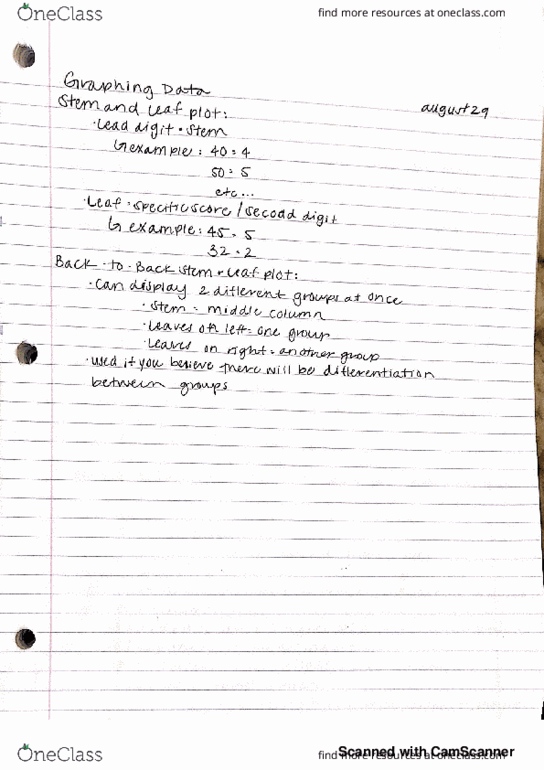 OneClass
find more resources at oneclass.com
Graphing Data
august 29
Stem and Leaf plot:
· Lead digit = stem
↳ example: 40 = 4
50 = 5
etc...
· Leaf = specific score / second digit
↳ example: 45 = 5
32 = 2
Back-to-Back stem + leaf plot:
· can display 2 different groups at once
· stem = middle column
· leaves on left = one group
· leaves on right = another group
· used if you believe there will be differentiation
between groups
OneClass
find more resources at oneclass.com
Scanned with CamScanner